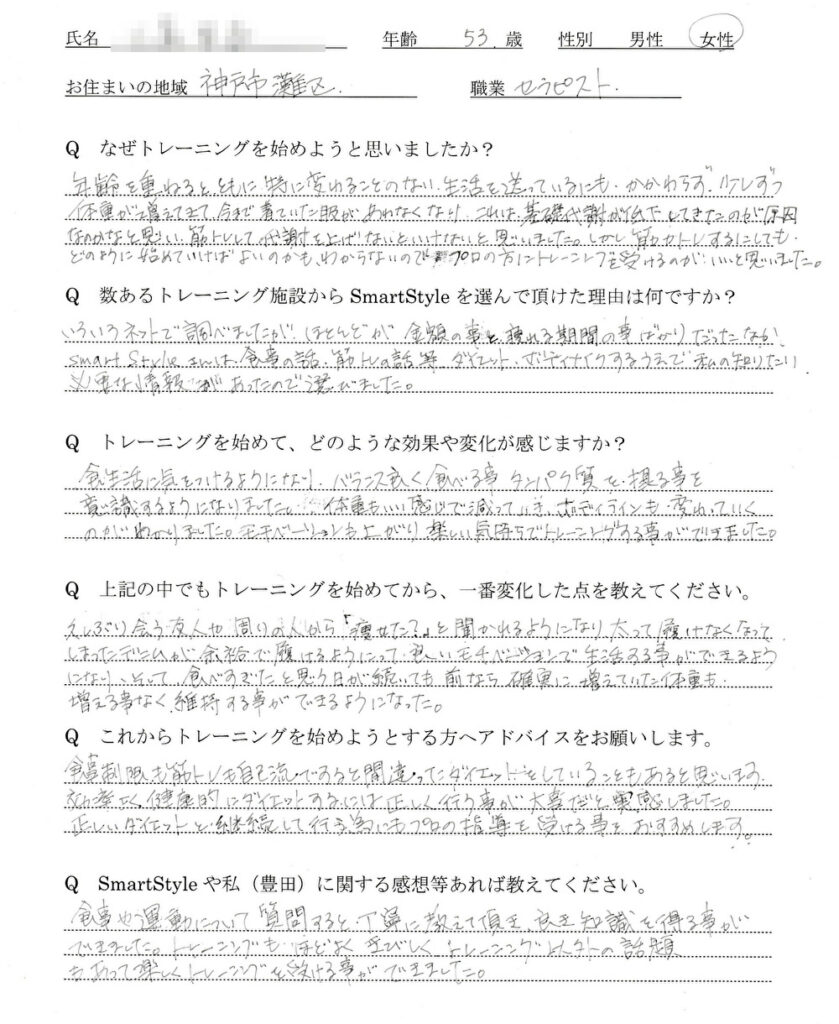 氏名 年齢 53 歳 性別 男性 女性
お住まいの地域 神戸市灘区. 職業 セラピスト.
Q なぜトレーニングを始めようと思いましたか?
年齢を重ねるとともに特に変わることのない生活を送っているにも、かかわらず、少しずつ
体重が増えてきて今まで着ていた服があわなくなり、これは、基礎代謝が低下してきたのが原因
なのかなと思い、筋トレして代謝を上げないといけないと思いました。しかし筋力トレするにしても、
どのように始めていけばよいのかも、わからないのでプロの方にトレーニングを受けるのが、いいと思いました。
Q 数あるトレーニング施設から SmartStyle を選んで頂けた理由は何ですか?
いろいろネットで調べましたが、ほとんどが 金額の事と痩れる期間の事ばかりだったなか、
smart Styleさんは、食事の話、筋トレの話等 ダイエット、ボディメイクするうえで私の知りたい
必要な情報があったので選びました。
Q トレーニングを始めて、どのような効果や変化が感じますか?
食生活に気をつけるようになり、バランス良く食べる事 タンパク質を摂る事を
意識するようになりました。体重もいい感じで減っていき、ボディラインも変わっていく
のがわかりました。モチベーションも上がり楽しい気持ちでトレーニングする事ができました。
Q 上記の中でもトレーニングを始めてから、一番変化した点を教えてください。
久しぶり会う友人や周りの人から「痩せた?」と聞かれるようになり太って履けなくなって
しまったデニムが余裕で履けるようにって、いいモチベーションで生活する事ができるよう
になり、そして、食べすぎたと思う日が続いても前なら確実に増えていた体重も
増える事なく維持する事ができるようになった。
Q これからトレーニングを始めようとする方へアドバイスをお願いします。
食事制限も筋トレも自己流ですると間違ったダイエットをしていることもあると思います。
効率よく健康的にダイエットするには正しく行う事が大事だと実感しました。
正しいダイエットと継続して行う為にもプロの指導を受ける事をおすすめします。
Q SmartStyle や私(豊田)に関する感想等あれば教えてください。
食事や運動について質問すると丁寧に教えて頂き、良き知識を得る事が
できました。トレーニングも、ほどよく きびしく トレーニング以外の話題
もあって楽しくトレーニングを受ける事ができました。